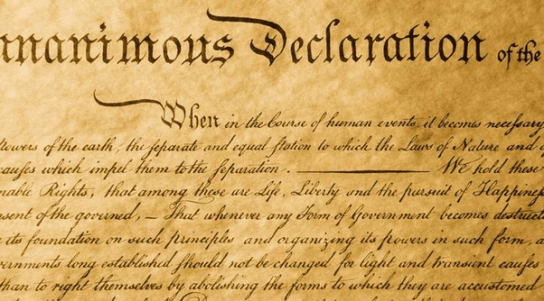 nanimous Declaration of the
When in the Course of human events, it becomes necessary
powers of the earth, the separate and equal station to which the Laws of Nature and of
causes which impel them to the separation. — We hold these
nable Rights, that among these are Life, Liberty and the pursuit of Happines
nsent of the governed, — That whenever any Form of Government becomes destructi
its foundation on such principles and organizing its powers in such form, a
ernments long established should not be changed for light and transient causes
than to right themselves by abolishing the forms to which they are accustomed